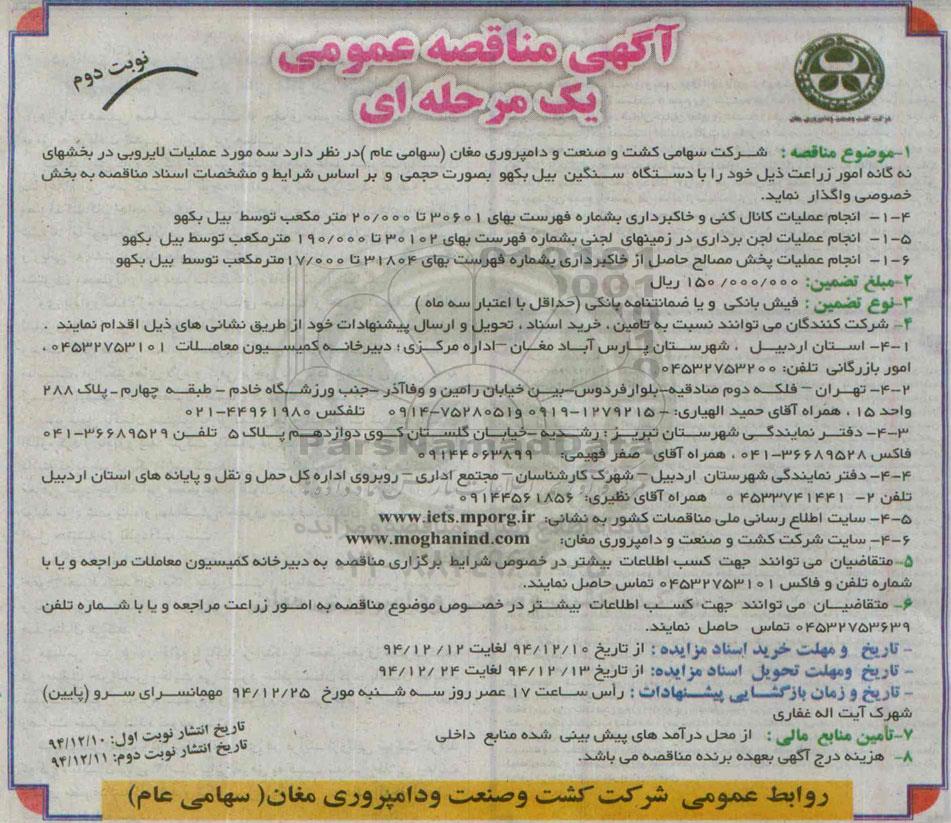 آگهی مناقصه عمومی
یک مرحله ای
نوبت دوم
شرکت کشت وصنعت ودامپروری مغان
۱-موضوع مناقصه : شرکت سهامی کشت و صنعت و دامپروری مغان (سهامی عام )در نظر دارد سه مورد عملیات لایروبی در بخشهای
نه گانه امور زراعت ذیل خود را با دستگاه سنگین بیل بکهو بصورت حجمی و بر اساس شرایط و مشخصات اسناد مناقصه به بخش
خصوصی واگذار نماید.
۱-۴- انجام عملیات کانال کنی و خاکبرداری بشماره فهرست بهای ۳۰۶۰۱ تا ۲۰/۰۰۰ متر مکعب توسط بیل بکهو
۱-۵- انجام عملیات لجن برداری در زمینهای لجنی بشماره فهرست بهای ۳۰۱۰۲ تا ۱۹۰/۰۰۰ مترمکعب توسط بیل بکهو
۱-۶- انجام عملیات پخش مصالح حاصل از خاکبرداری بشماره فهرست بهای ۳۱۸۰۴ تا ۱۷/۰۰۰مترمکعب توسط بیل بکهو
۲-مبلغ تضمین: ۱۵۰/۰۰۰/۰۰۰ ریال
۳-نوع تضمین : فیش بانکی و یا ضمانتنامه بانکی (حداقل با اعتبار سه ماه )
۴- شرکت کنندگان می توانند نسبت به تامین ، خرید اسناد ، تحویل و ارسال پیشنهادات خود از طریق نشانی های ذیل اقدام نمایند .
۴-۱- استان اردبیل ، شهرستان پارس آباد مغان –اداره مرکزی ؛ دبیرخانه کمیسیون معاملات ۰۴۵۳۲۷۵۳۱۰۱ ،
امور بازرگانی تلفن: ۰۴۵۳۲۷۵۳۲۰۰
۴-۲- تهران – فلکه دوم صادقیه-بلوارفردوس-بین خیابان رامین و وفاآذر -جنب ورزشگاه خادم - طبقه چهارم - پلاک ۲۸۸
واحد ۱۵ ، همراه آقای حمید الهیاری: - ۱۲۷۹۲۱۵-۰۹۱۹ و۷۵۲۸۰۵۱-۰۹۱۴ تلفکس ۴۴۹۶۱۹۸۰-۰۲۱
۴-۳- دفتر نمایندگی شهرستان تبریز : رشدیه -خیابان گلستان کوی دوازدهم پلاک ۵ تلفن ۳۶۶۸۹۵۲۹-۰۴۱
فاکس ۳۶۶۸۹۵۲۸-۰۴۱ ، همراه آقای صفر فهیمی: ۰۹۱۴۴۰۶۳۸۹۹
۴-۴- دفتر نمایندگی شهرستان اردبیل - شهرک کارشناسان – مجتمع اداری – روبروی اداره کل حمل و نقل و پایانه های استان اردبیل
تلفن ۲- ۴۵۳۳۷۴۱۴۴۱ ۰ همراه آقای نظیری: ۰۹۱۴۴۵۶۱۸۵۶
۴-۵- سایت اطلاع رسانی ملی مناقصات کشور به نشانی: www.iets.mporg.ir
۴-۶- سایت شرکت کشت و صنعت و دامپروری مغان: www.moghanind.com
۵- متقاضیان می توانند جهت کسب اطلاعات بیشتر در خصوص شرایط برگزاری مناقصه به دبیرخانه کمیسیون معاملات مراجعه و یا با
شماره تلفن و فاکس ۰۴۵۳۲۷۵۳۱۰۱ تماس حاصل نمایند.
۶- متقاضیان می توانند جهت کسب اطلاعات بیشتر در خصوص موضوع مناقصه به امور زراعت مراجعه و یا با شماره تلفن
۰۴۵۳۲۷۵۳۶۳۹ تماس حاصل نمایند.
- تاریخ و مهلت خرید اسناد مزایده : از تاریخ ۹۴/۱۲/۱۰ لغایت ۹۴/۱۲/۱۲
- تاریخ ومهلت تحویل اسناد مزایده: از تاریخ ۹۴/۱۲/۱۳ لغایت ۹۴/۱۲/۲۴
- تاریخ و زمان بازگشایی پیشنهادات : رأس ساعت ۱۷ عصر روز سه شنبه مورخ ۹۴/۱۲/۲۵ مهمانسرای سرو (پایین)
شهرک آیت اله غفاری
۷-تأمین منابع مالی: از محل درآمد های پیش بینی شده منابع داخلی
۸- هزینه درج آگهی بعهده برنده مناقصه می باشد.
تاریخ انتشار نوبت اول: ۹۴/۱۲/۱۰
تاریخ انتشار نوبت دوم: ۹۴/۱۲/۱۱
روابط عمومی شرکت کشت وصنعت ودامپروری مغان( سهامی عام)